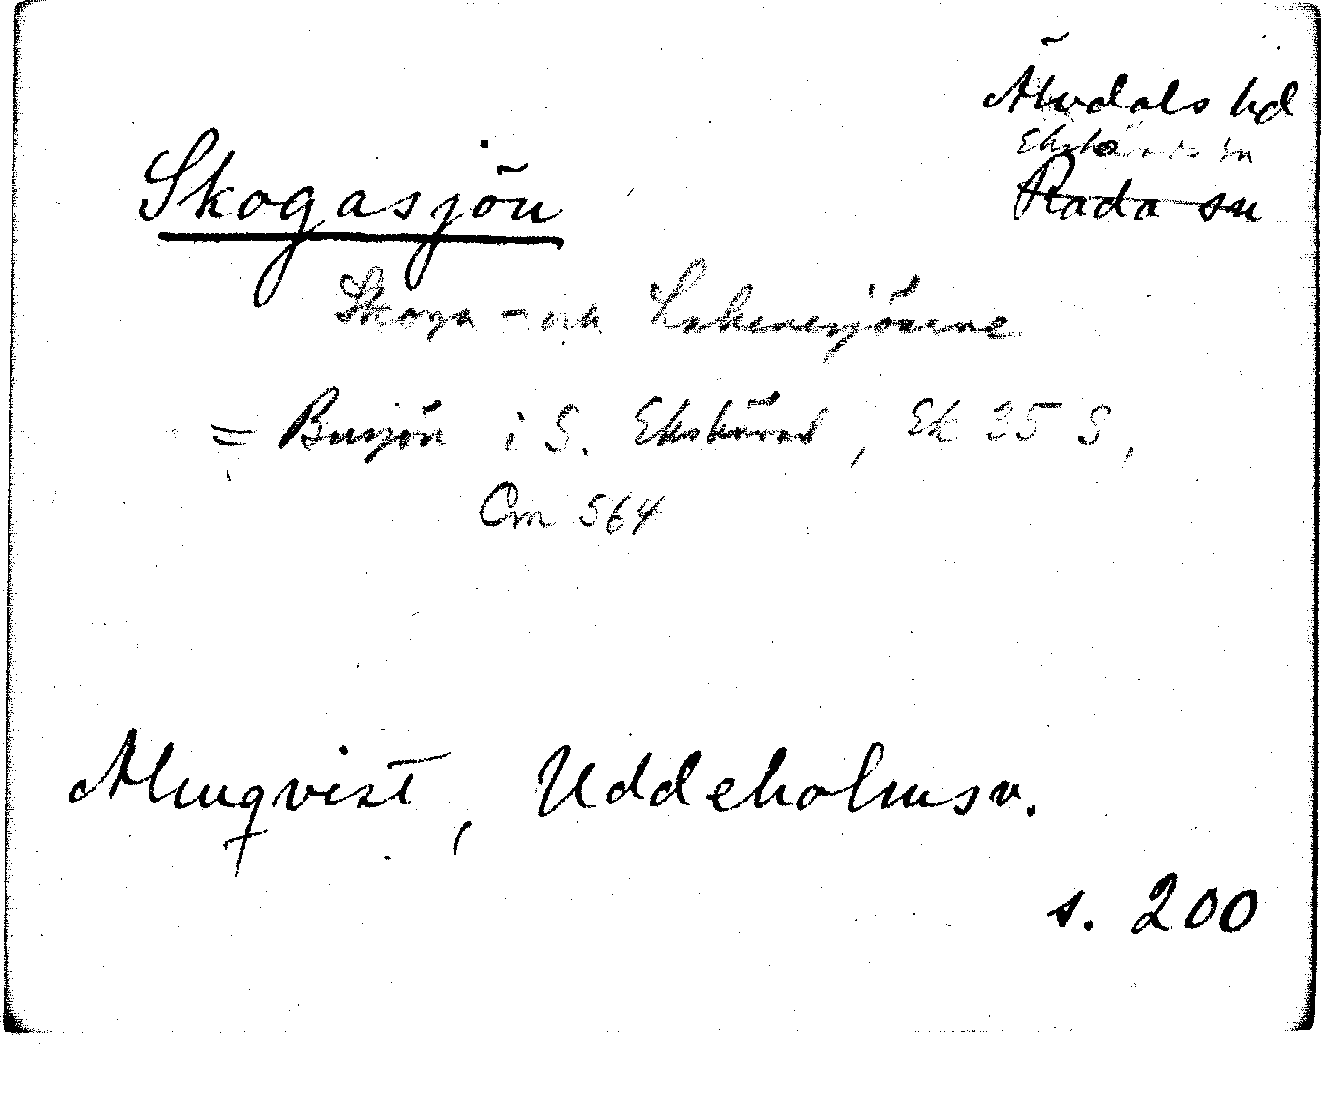 Älvdals hd
Ekshärads sn
Råda sn
Skogasjön
Skoga- och
= Busjön i S. Ekshärad, Ek 25 S,
Om 564
Almqvist, Uddeholmsv.
s. 200